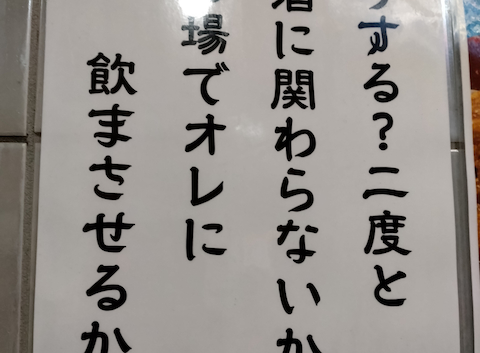 する?二度と
に関わらないか
場でオレに
飲まさせるか